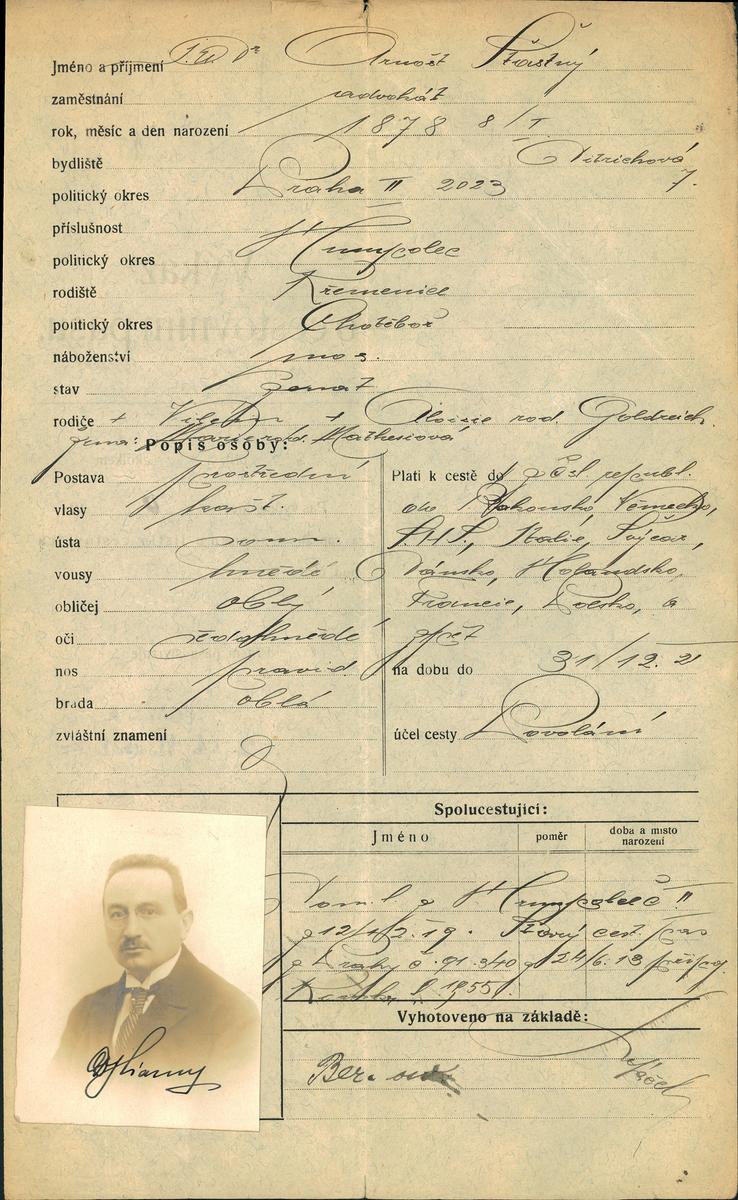 Jméno a příjmení J.U.Dr Arnošt Šťastný
zaměstnání advokát
rok, měsíc a den narození 1878 8/I.
bydliště Ditrichová
politický okres Praha II 2023 7.
příslušnost
politický okres Humpolec
rodiště Křemenice
politický okres Chotěboř
náboženství mos.
stav ženat
rodiče + Vilém + Aloisie roz. Goldreich.
žena: Marie rod. Mathesiová
Popis osoby:
Postava prostřední
vlasy kašt.
ústa soum.
vousy hnědé
obličej oblý
oči šedohnědé
nos pravid.
brada oblá
zvláštní znamení
Platí k cestě do z Čsl republ.
do Rakouska, Německo,
S.H.S., Italie, Švýcar,
Dánsko, Holandsko,
Francie, Polsko, a
zpět
na dobu do 31/12. 21
účel cesty Povolání
Spolucestující:
Jméno poměr doba a místo narození
Dom. l. z Humpolec č II
z 12/2.19. Starý cest. pas
z Prahy č. 91.340 z 24/6.13
1955.
Vyhotoveno na základě: